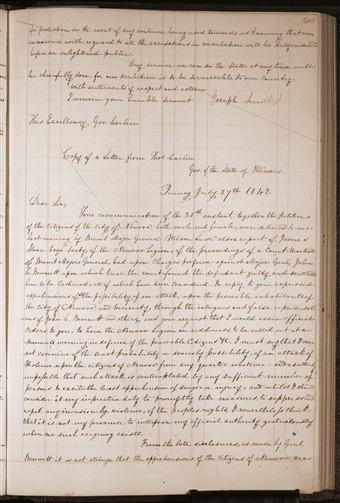 for protection in the event of any violence being used towards us knowing that our
innocence with regard to all the accusations in circulation will be
before an enlightened public.
Any service we can do the State at any time will
be cheerfully done for our ambition is to be serviceable to our country
With sentiments of respect and esteem
I remain your humble servant Joseph Smith
His Excellency Gov. Carlin
Copy of a letter from Thos Carlin
Gov. of the State of Illinois
Quincy July 27th 1842
Dear Sir,
Your communication of the 25th instant together the petitions
of the citizens of the City of Nauvoo both male and female were delivered to me
last evening by Brevet Major General Wilson Law also a report of James
Sloan Esqr Secty of the Nauvoo Legion, of the proceedings of a Court Martial
of Brevet Major General, had upon charges preferred against Major Genl John
C. Bennett upon which trial the court found the defendant guilty, and sentenced
him to be Cashiered, all of which have been considered. In reply to your expressed
apprehensions of the possibility of an attack, upon the peaceable inhabitants of
the City of Nauvoo and vicinity, through the intrigues and false representations
of John C. Bennett and others, and your request that I would issue official
orders to you, to have the Nauvoo Legion in readiness to be called out at a
moments warning in defence of the peaceable Citizens &c. I must say that I can
not conceive of the least probability or scarcely possibility, of an attack of
violence upon the citizens of Nauvoo from any quarter whatever and as utterly
impossible that such attack is contemplated by any sufficient number of
persons to excite the least apprehension of danger or injury, and whilst I should
consider it my imperative duty to promptly take measures to suppress and
repel any invasion by violence, of the peoples rights I nevertheless think
that it is not my province to interpose my official authority gratuitously
when no such exigency exists.
From the late disclosures, as made by Genl
Bennett it is not strange that the apprehensions of the Citizens of Nauvoo are